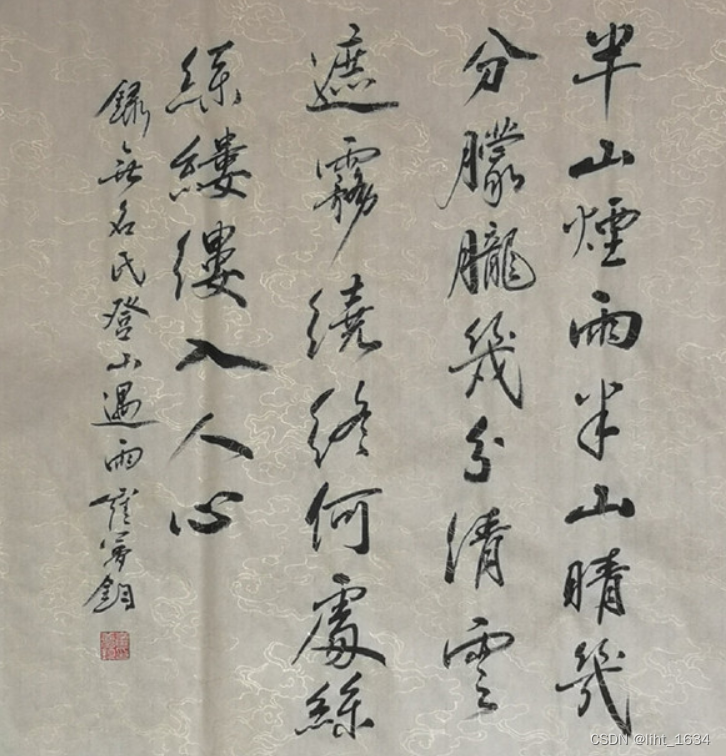 半山煙雨半山晴幾
分朦朧幾分清雲
遮霧繞終何處絲
絲縷縷入人心
錄無名氏登山遇雨
CSDN @liht_1634